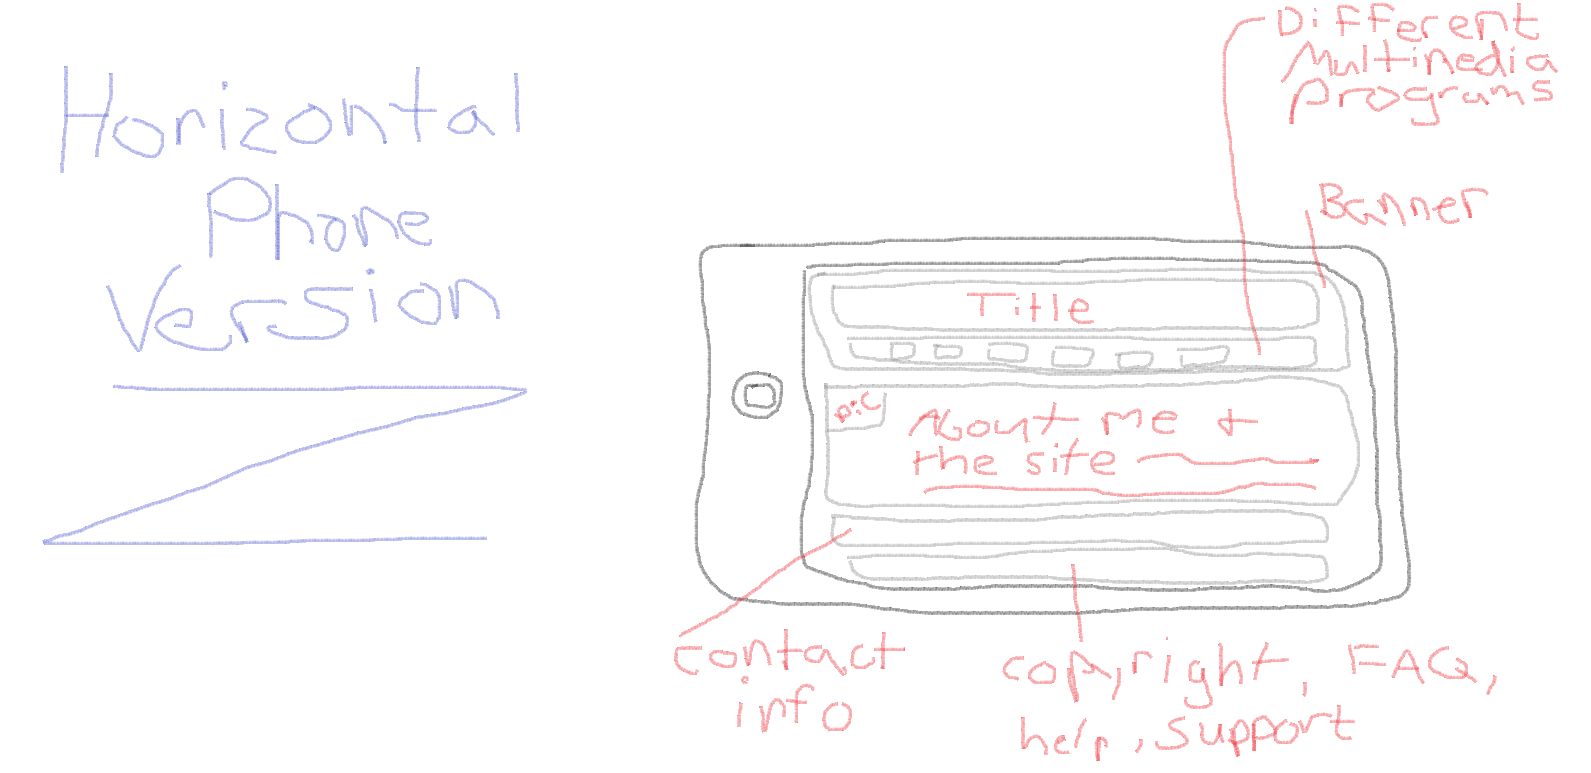 Horizontal
Phone
Version
Different
Multimedia
programs
Banner
Title
pic
About me +
the site
contact
info
copyright, FAQ,
help, support